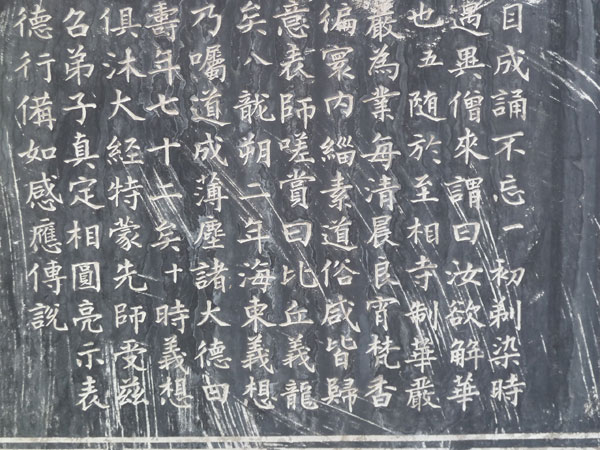 目成誦不忘一初剃染時
遇異僧來謂曰汝欲解華
也五隨於至相寺制華嚴
嚴為業每清晨良宵梵香
徧寰内緇素道俗咸皆歸
意表師嗟賞曰比丘義龍
矣八龍朔二年海東義想
乃囑道成薄塵諸大德
壽年七十二矣十時義想
俱沐大經特蒙先師受兹
名弟子真定相圓亮示表
德行備如感應傳説